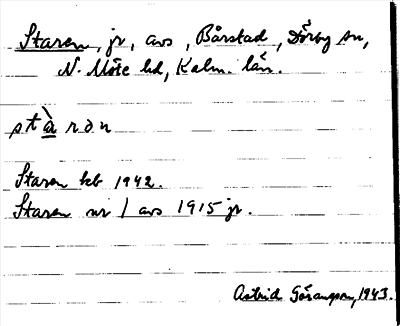 Staren, jr, avs, Bårstad, Dörby sn,
N. Möre hd, Kalm. län.
stàrən
Staren kb 1942.
Staren nr 1 avs 1915 jr.
Astrid Göransson, 1943.